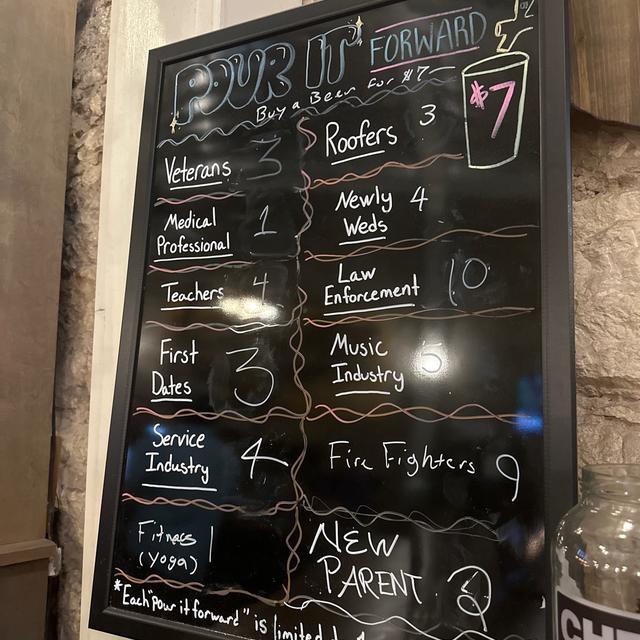 POUR IT FORWARD
Buy a Beer for $7
$7
Veterans 3
Medical
Professional 1
Teachers 4
First
Dates 3
Service
Industry 4
Fitness
(Yoga) 1
Roofers 3
Newly
Weds 4
Law
Enforcement 10
Music
Industry 5
Fire Fighters 9
NEW
PARENT 2
*Each "pour it forward" is limited